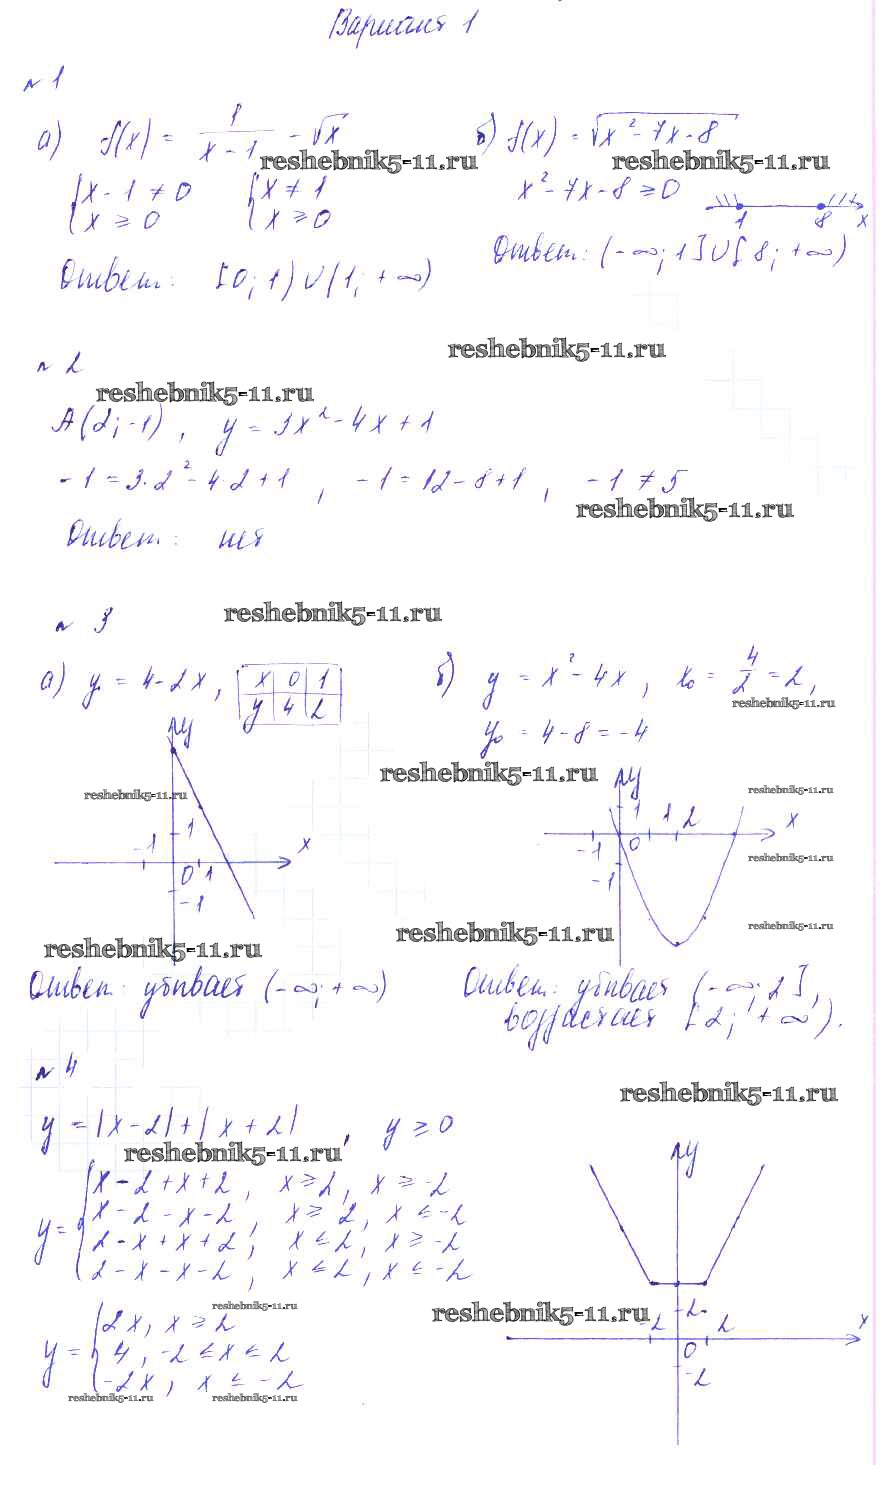 Вариант 1
№ 1
а) f(x) = 1/(x - 1) - √x
reshebnik5-11.ru
{x - 1 ≠ 0 {x ≠ 1
{x ≥ 0 {x ≥ 0
Ответ: [0; 1) ∪ (1; +∞)
б) f(x) = √(x² - 7x - 8)
reshebnik5-11.ru
x² - 7x - 8 ≥ 0
1 8 x
Ответ: (-∞; 1] ∪ [8; +∞)
reshebnik5-11.ru
№ 2
reshebnik5-11.ru
A(2; -1), y = 3x² - 4x + 1
-1 = 3·2² - 4·2 + 1, -1 = 12 - 8 + 1, -1 ≠ 5
reshebnik5-11.ru
Ответ: нет
№ 3
reshebnik5-11.ru
а) y = 4 - 2x,
x 0 1
y 4 2
y
reshebnik5-11.ru
1
-1 x
0 1
-1
reshebnik5-11.ru
Ответ: убывает (-∞; +∞)
б) y = x² - 4x, x₀ = 4/2 = 2,
reshebnik5-11.ru
y₀ = 4 - 8 = -4
reshebnik5-11.ru
y
reshebnik5-11.ru
1 1 2 x
-1 0
reshebnik5-11.ru
-1
reshebnik5-11.ru
reshebnik5-11.ru
Ответ: убывает (-∞; 2],
возрастает [2; +∞).
№ 4
reshebnik5-11.ru
y = |x - 2| + |x + 2|, y ≥ 0
reshebnik5-11.ru
y = {x - 2 + x + 2, x ≥ 2, x ≥ -2
x - 2 - x - 2, x ≥ 2, x ≤ -2
2 - x + x + 2, x ≤ 2, x ≥ -2
2 - x - x - 2, x ≤ 2, x ≤ -2
reshebnik5-11.ru
y = {2x, x ≥ 2
4, -2 ≤ x ≤ 2
-2x, x ≤ -2
reshebnik5-11.ru
reshebnik5-11.ru
y
reshebnik5-11.ru
2
-2 2 x
0
-2